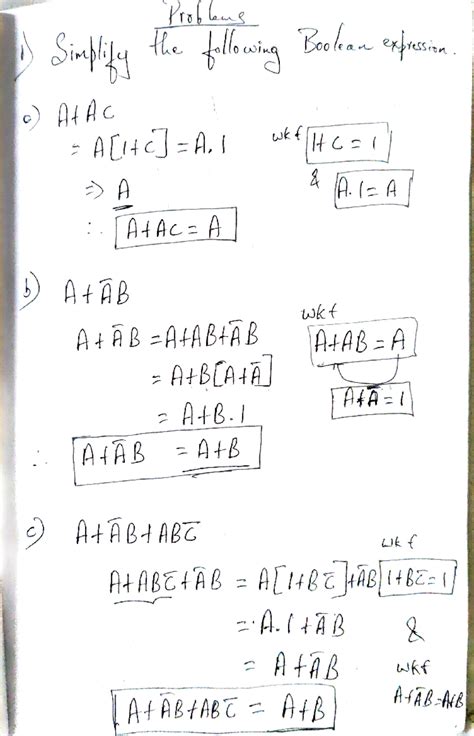 Problems
1) Simplify the following Boolean expression.
a) A+AC
= A[1+C] = A.1 wkt 1+C = 1
⇒ A & A.1 = A
∴ A+AC = A
b) A+A̅B
wkt
A+A̅B = A+AB+A̅B A+AB = A
= A+B[A+A̅]
A+A̅ = 1
= A+B.1
∴ A+A̅B = A+B
c) A+A̅B+ABC̅
wkt
A+ABC̅+A̅B = A[1+BC̅]+A̅B 1+BC̅=1
= A.1+A̅B &
= A+A̅B wkt
A+A̅B=A+B
A+A̅B+ABC̅ = A+B